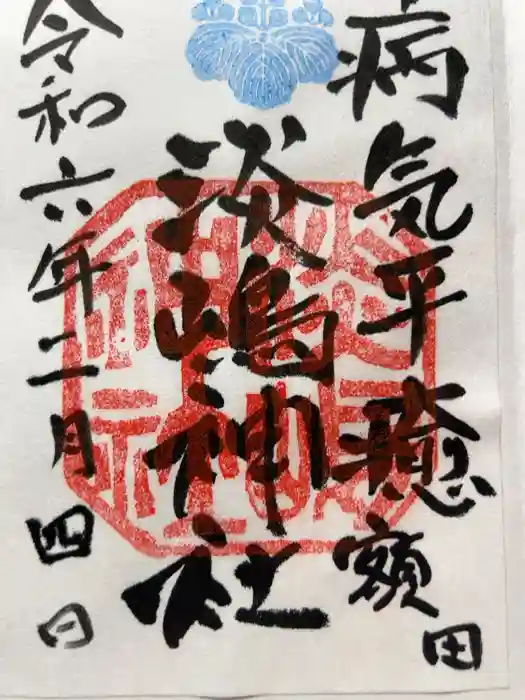 病気平癒額田
淡嶋神社
令和六年二月四日